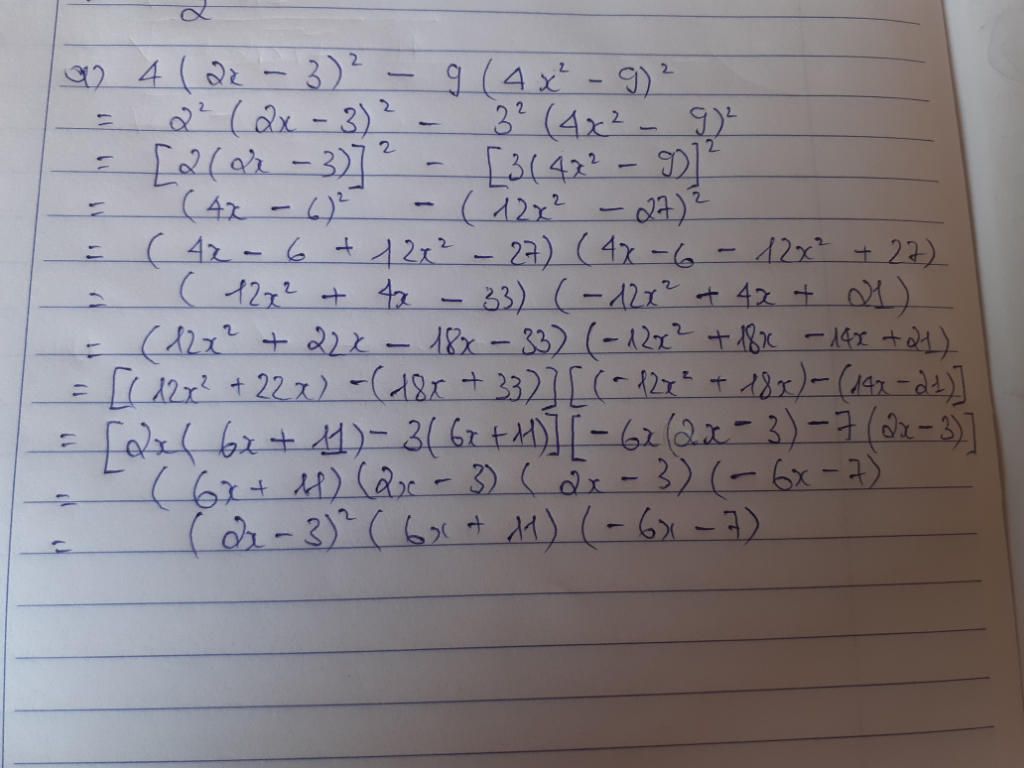 2
a) 4 ( 2x − 3 )² − 9 ( 4x² − 9 )²
= 2² ( 2x − 3 )² − 3² ( 4x² − 9 )²
= [ 2 ( 2x − 3 ) ]² − [ 3 ( 4x² − 9 ) ]²
= ( 4x − 6 )² − ( 12x² − 27 )²
= ( 4x − 6 + 12x² − 27 ) ( 4x − 6 − 12x² + 27 )
= ( 12x² + 4x − 33 ) ( −12x² + 4x + 21 )
= ( 12x² + 22x − 18x − 33 ) ( −12x² + 18x − 14x + 21 )
= [ ( 12x² + 22x ) − ( 18x + 33 ) ] [ ( −12x² + 18x ) − ( 14x − 21 ) ]
= [ 2x ( 6x + 11 ) − 3 ( 6x + 11 ) ] [ −6x ( 2x − 3 ) − 7 ( 2x − 3 ) ]
= ( 6x + 11 ) ( 2x − 3 ) ( 2x − 3 ) ( −6x − 7 )
= ( 2x − 3 )² ( 6x + 11 ) ( −6x − 7 )